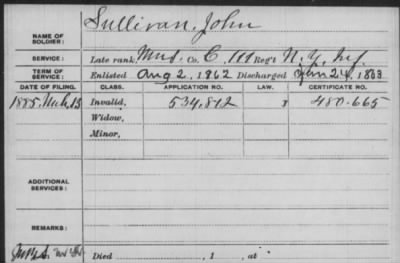 Sullivan, John
NAME OF SOLDIER:
SERVICE: Late rank, Mus. Co. C, 111 Reg't N.Y. Inf.
TERM OF SERVICE: Enlisted Aug 2, 1862 Discharged 24, 1863
DATE OF FILING. CLASS. APPLICATION NO. LAW. CERTIFICATE NO.
1885, Mch 13 Invalid, 534.812 480.665
Widow,
Minor,
ADDITIONAL SERVICES:
REMARKS:
Died , 1 , at